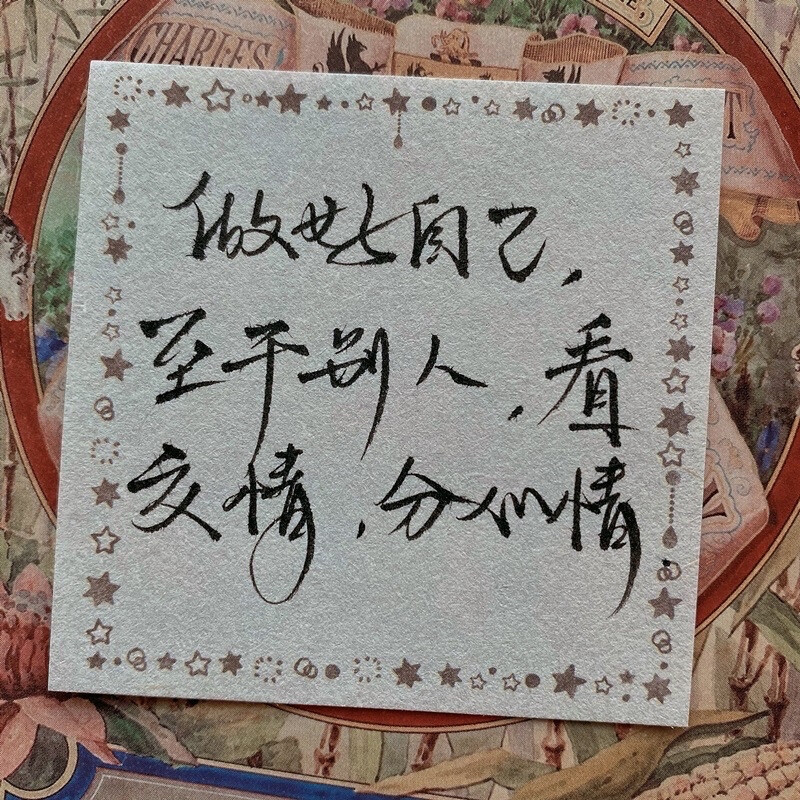 CHARLES
做好自己，
至于别人，看
交情，分心情